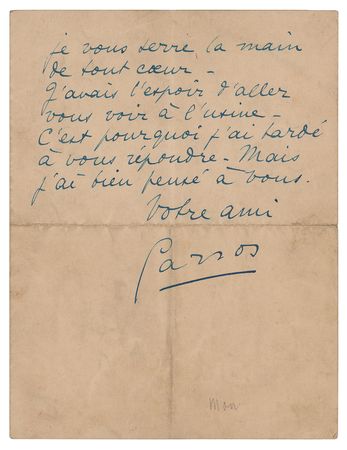 je vous serre la main
de tout cœur –
J'avais l'espoir d'aller
vous voir à l'usine –
C'est pourquoi j'ai tardé
à vous répondre – Mais
j'ai bien pensé à vous.
Votre ami